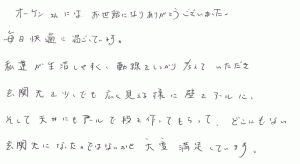 オークンさんには お世話になりありがとうございました。
毎日快適に過ごしています。
私達が生活しやすく、動線をしっかり考えていただき
玄関先も少しでも広く見える様に壁をアールに、
そして天井にもアールで段を作ってもらって、どこにもない
玄関先になったのではないかと大変満足しています。